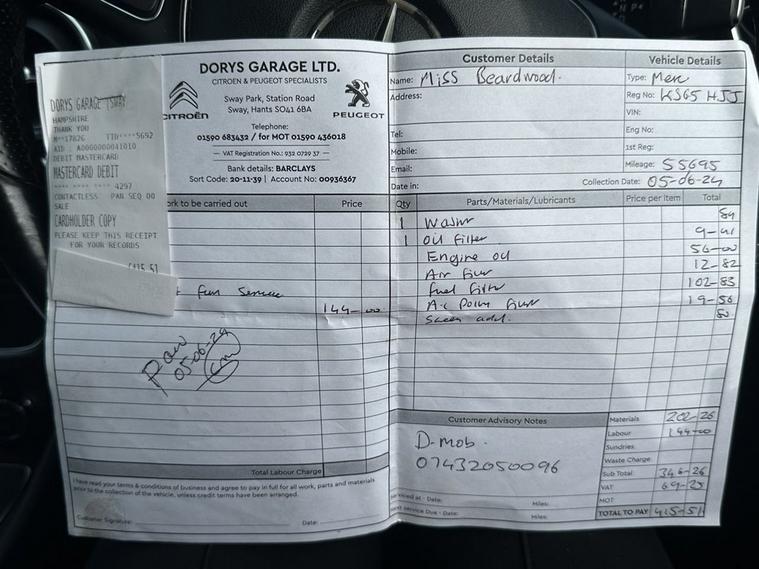 DORYS GARAGE (SWAY
HAMPSHIRE
THANK YOU
M**17826 TID****5692
AID : A0000000041010
DEBIT MASTERCARD
MASTERCARD DEBIT
**** **** **** 4297
CONTACTLESS PAN SEQ 00
SALE
CARDHOLDER COPY
PLEASE KEEP THIS RECEIPT
FOR YOUR RECORDS
DORYS GARAGE LTD.
CITROËN & PEUGEOT SPECIALISTS
CITROËN
PEUGEOT
Sway Park, Station Road
Sway, Hants SO41 6BA
Telephone:
01590 683432 / for MOT 01590 436018
VAT Registration No.: 932 0729 37
Bank details: BARCLAYS
Sort Code: 20-11-39 | Account No: 00936367
Customer Details
Name: Miss Beardwood.
Address:
Tel:
Mobile:
Email:
Date in:
Collection Date: 05-06-24
Vehicle Details
Type: Merc
Reg No: KS65 HJJ
VIN:
Eng No:
1st Reg:
Mileage: 55695
rk to be carried out Price
Full Service
144-00
Paid
05-06-24
Qty Parts/Materials/Lubricants Price per Item Total
1 Washer 84
1 Oil Filter 9-41
Engine oil 56-00
Air Filter 12-82
Fuel Filter 102-83
A.C Pollen Filter 19-56
Screen add. 80
Total Labour Charge
I have read your terms & conditions of business and agree to pay in full for all work, parts and materials
prior to the collection of the vehicle, unless credit terms have been arranged.
Customer Signature: Date:
Customer Advisory Notes
D-mob.
07432050096
Serviced at - Date: Miles:
Next service Due - Date: Miles:
Materials 202-26
Labour 144-00
Sundries
Waste Charge
Sub Total 346-26
VAT 69-25
MOT
TOTAL TO PAY 415-51